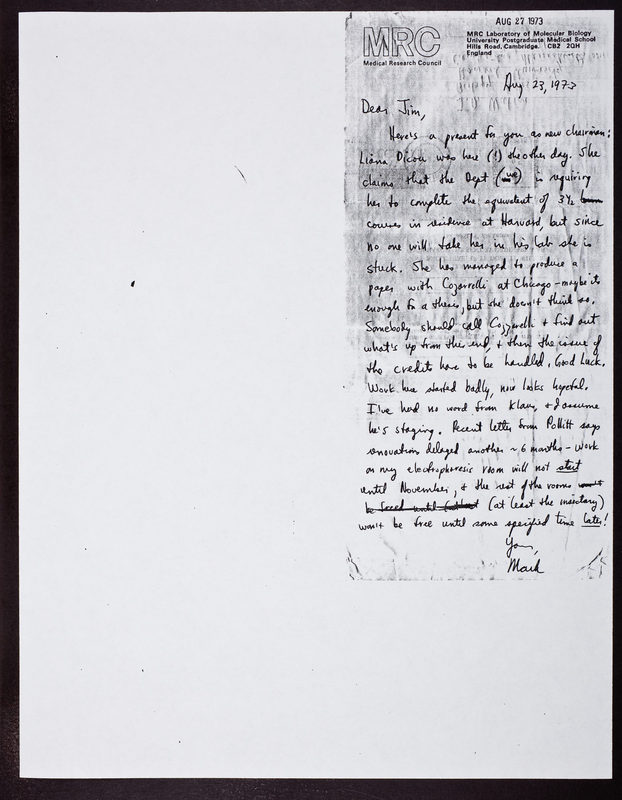 AUG 27 1973
MRC
Medical Research Council
MRC Laboratory of Molecular Biology
University Postgraduate Medical School
Hills Road, Cambridge. CB2 2QH
England
Aug 23, 1973
Dear Jim,
Here's a present for you as new chairman:
Liana was here (!) the other day. She
claims that the Dept (we) is requiring
her to complete the equivalent of 3½
courses in residence at Harvard, but since
no one will take her in his lab she is
stuck. She has managed to produce a
paper with Cozzarelli at Chicago - maybe its
enough for a thesis, but she doesn't think so.
Somebody should call Cozzarelli & find out
what's up from this end, & then the issue of
the credits have to be handled. Good Luck.
Work here started badly, now looks hopeful.
I've had no word from Klaus, & I assume
he's staying. Recent letter from Pollitt says
renovation delayed another ~ 6 months - work
on my electrophoresis room will not start
until November, & the rest of the rooms
be freed until (at least the)
won't be free until some specified time later!
Yours,
Mark